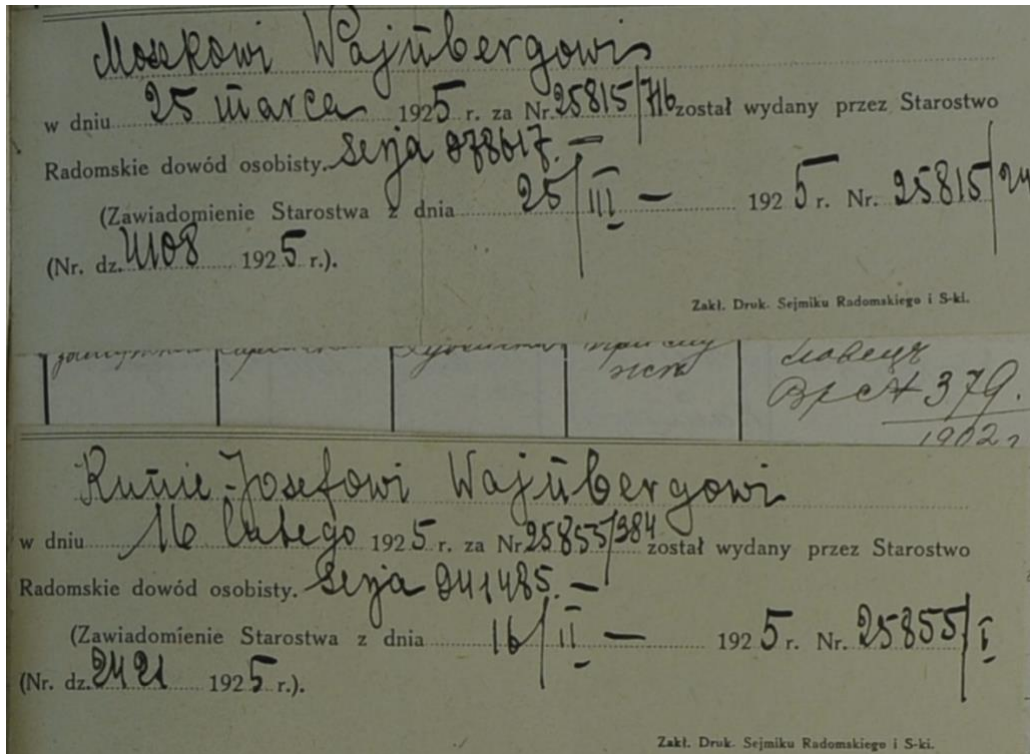 Moszkowi Wajnbergowi
w dniu 25 marca 1925 r. za Nr 25815/716 został wydany przez Starostwo
Radomskie dowód osobisty. Serja 078617. —
(Zawiadomienie Starostwa z dnia 25/III — 1925 r. Nr. 25815/24
(Nr. dz. 4108 1925 r.).
Zakł. Druk. Sejmiku Radomskiego i S-ki.
379.
1902 г
Runie-Josefowi Wajnbergowi
w dniu 16 lutego 1925 r. za Nr 25855/384 został wydany przez Starostwo
Radomskie dowód osobisty. Serja 041485. —
(Zawiadomienie Starostwa z dnia 16/II — 1925 r. Nr. 25855/I
(Nr. dz. 2421 1925 r.).
Zakł. Druk. Sejmiku Radomskiego i S-ki.